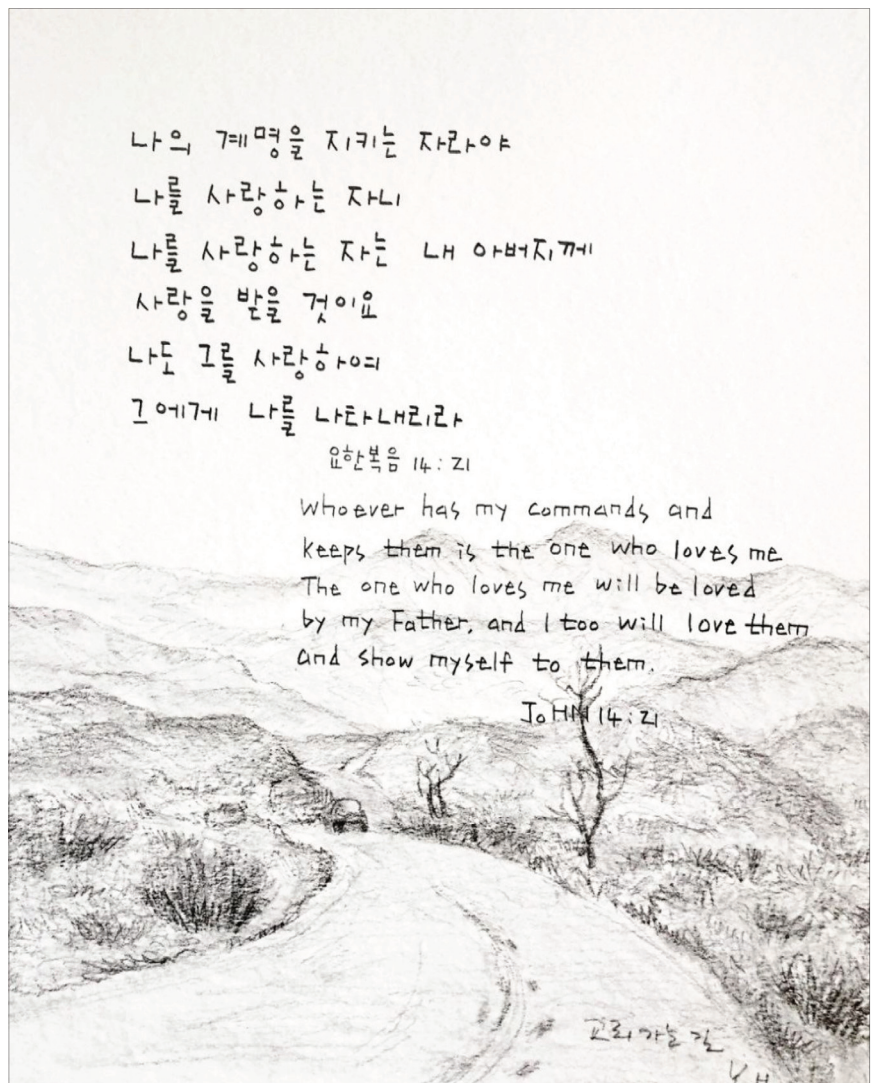 나의 계명을 지키는 자라야
나를 사랑하는 자니
나를 사랑하는 자는 내 아버지께
사랑을 받을 것이요
나도 그를 사랑하여
그에게 나를 나타내리라
요한복음 14:21
Whoever has my commands and
keeps them is the one who loves me
The one who loves me will be loved
by my Father, and I too will love them
and show myself to them.
JoHN 14:21
교회가는길